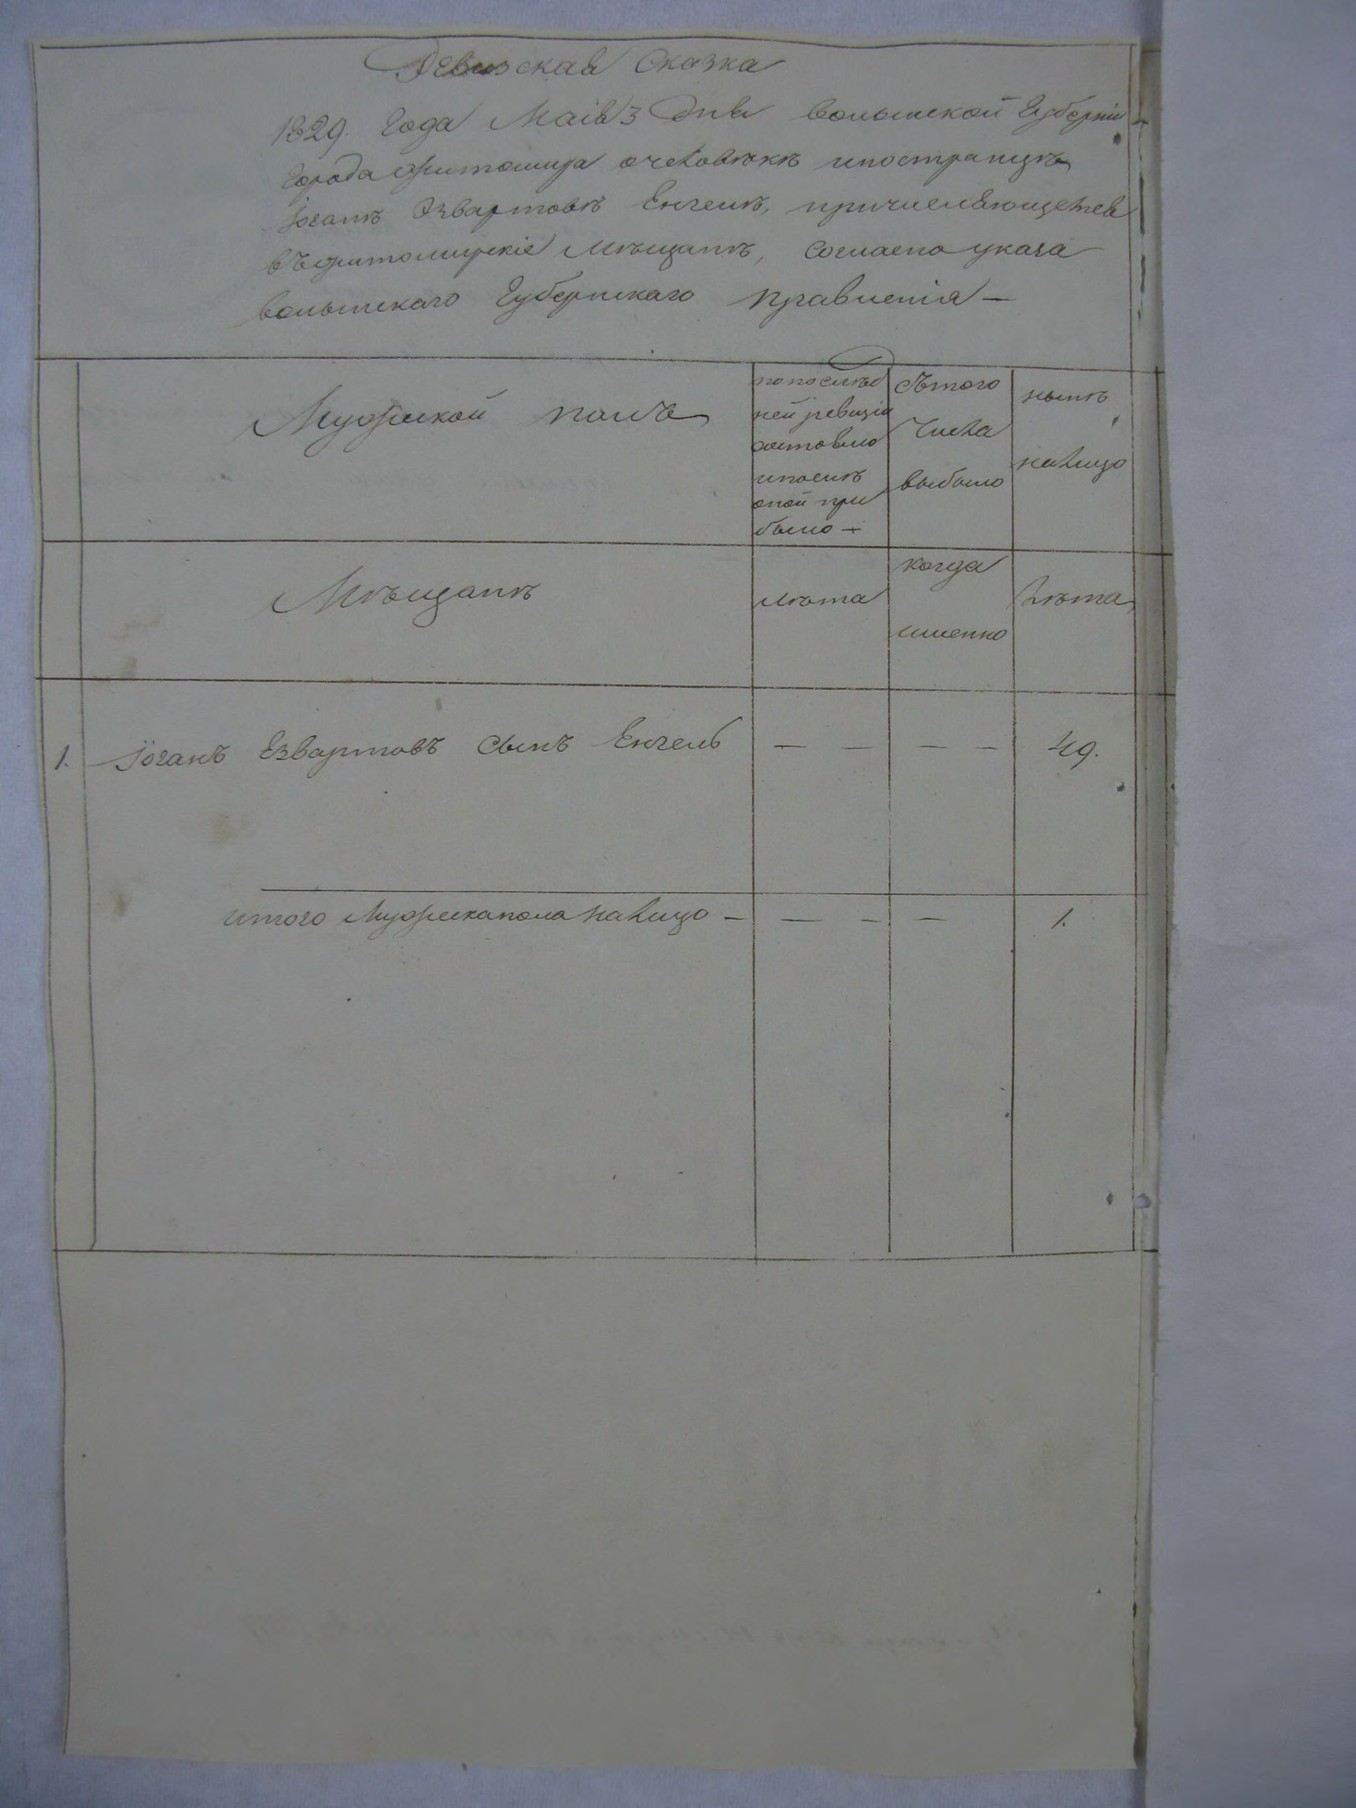 Ревизская Сказка
1829. Года Маія 3 Дня Волынской Губерніи
Города Житомира о человѣкѣ иностранцѣ
Іоганѣ Эзвартовѣ Енгелѣ, причисляющемся
въ житомирскіе Мѣщанѣ, согласно указа
волынскаго Губернскаго Правленія —
Мужской полъ
попослѣд
ней ревизіи
состояло
ипослѣ
оной при
было —
Изтого
числа
выбыло
нынѣ
налицо
Мѣщанѣ
лѣта
когда
именно
Лѣта
1. Іоганъ Езвартовъ сынъ Енгель — — — — 49.
итого Мужска пола налицо — — — — 1.